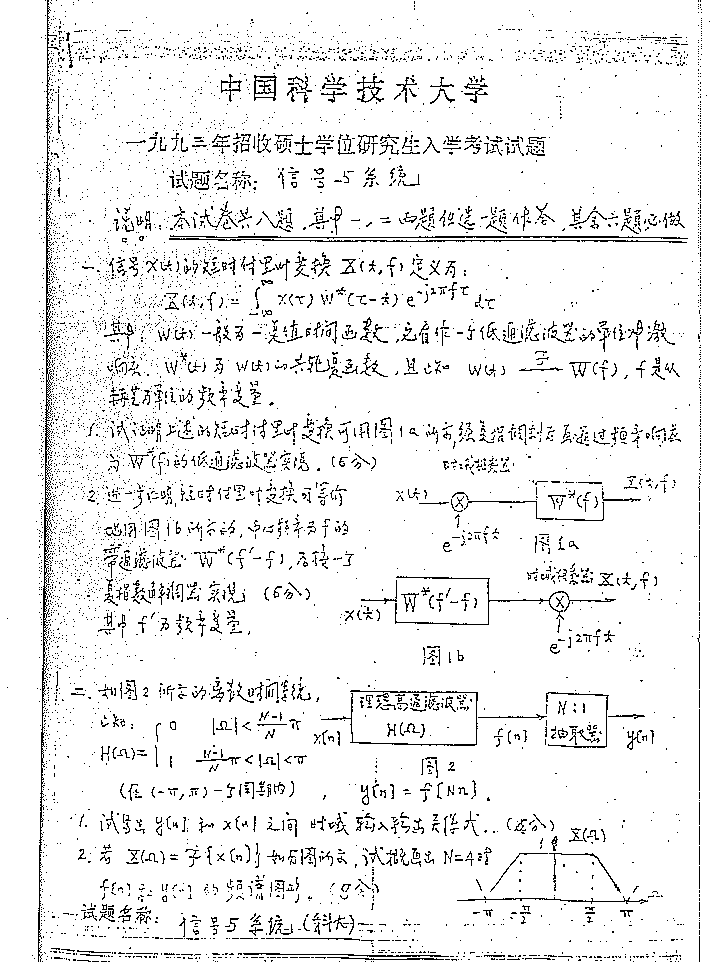 中国科学技术大学
一九九三年招收硕士学位研究生入学考试试题
试题名称: 信号与系统
说明: 本试卷共八题,其中一、二两题任选一题作答,其余六题必做
一. 信号x(t)的短时付里叶变换 X(t,f) 定义为:
X(t,f) = ∫_{-∞}^{∞} x(τ) w*(τ-t) e^{-j2πfτ} dτ
其中, w(t)一般为一复值时间函数, 它看作一个低通滤波器的单位冲激
响应, w*(t) 为 w(t)的共轭复函数, 且已知 w(t) —F→ W(f), f是以
赫芝为单位的频率变量。
1. 试证明上述的短时付里叶变换可用图1a所示,经复指调制后再通过频率响应
为W*(f)的低通滤波器实现。(5分)
x(t) × W*(f) X(t,f)
e^{-j2πft}
图1a
2. 进一步证明,短时付里叶变换可等价
地用图1b所示的,中心频率为f的
带通滤波器 W*(f'-f), 后接一个
复指数解调器实现; (5分)
其中 f'为频率变量.
X(t,f)
x(t) W*(f'-f) ×
e^{-j2πft}
图1b
二. 如图2所示的离散时间系统,
已知:
H(Ω)= { 0 |Ω|<(N-1)/N π
1 (N-1)/N π<|Ω|<π
(在(-π,π)一个周期内) , y[n] = f[Nn].
x[n] 理想高通滤波器 H(Ω) f[n] N:1 抽取器 y[n]
图2
1. 试导出 y[n] 和 x[n] 之间时域输入输出关系式.
2. 若 X(Ω) = F{x[n]} 如右图所示, 试概画出 N=4时
f[n]和y[n]的频谱图形。
1 X(Ω)
-π -π/2 π/2 π Ω
试题名称: 信号与系统(科大)